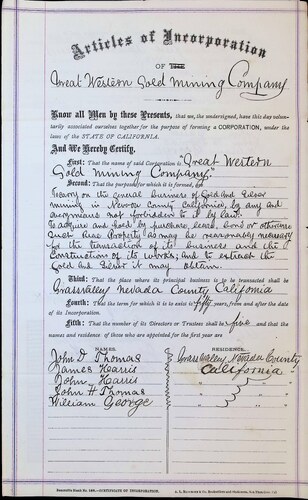 Articles of Incorporation
OF THE
Great Western Gold Mining Company
Know all Men by these Presents, that we, the undersigned, have this day voluntarily associated ourselves together for the purpose of forming a CORPORATION, under the laws of the STATE OF CALIFORNIA.
And We Hereby Certify.
First: That the name of said Corporation is "Great Western
Gold Mining Company."
Second: That the purpose for which it is formed, is
To carry on the general business of Gold and Silver
mining in Nevada County California, by any and
any means not forbidden to it by law.
To acquire and hold by purchase, lease, bond or otherwise
such Real Property as may be reasonably necessary
for the transaction of its business and the
Construction of its works; and to extract the
Gold and Silver it may obtain.
Third: That the place where its principal business is to be transacted shall be
Grass Valley Nevada County California
Fourth: That the term for which it is to exist is fifty years, from and after the date
of its Incorporation.
Fifth: That the number of its Directors or Trustees shall be five and that the
names and residence of those who are appointed for the first year are
NAMES. RESIDENCE.
John D Thomas Grass Valley Nevada County
James Harris California
John Harris " " "
John H Thomas " " "
William George " " "
CERTIFICATE OF INCORPORATION.